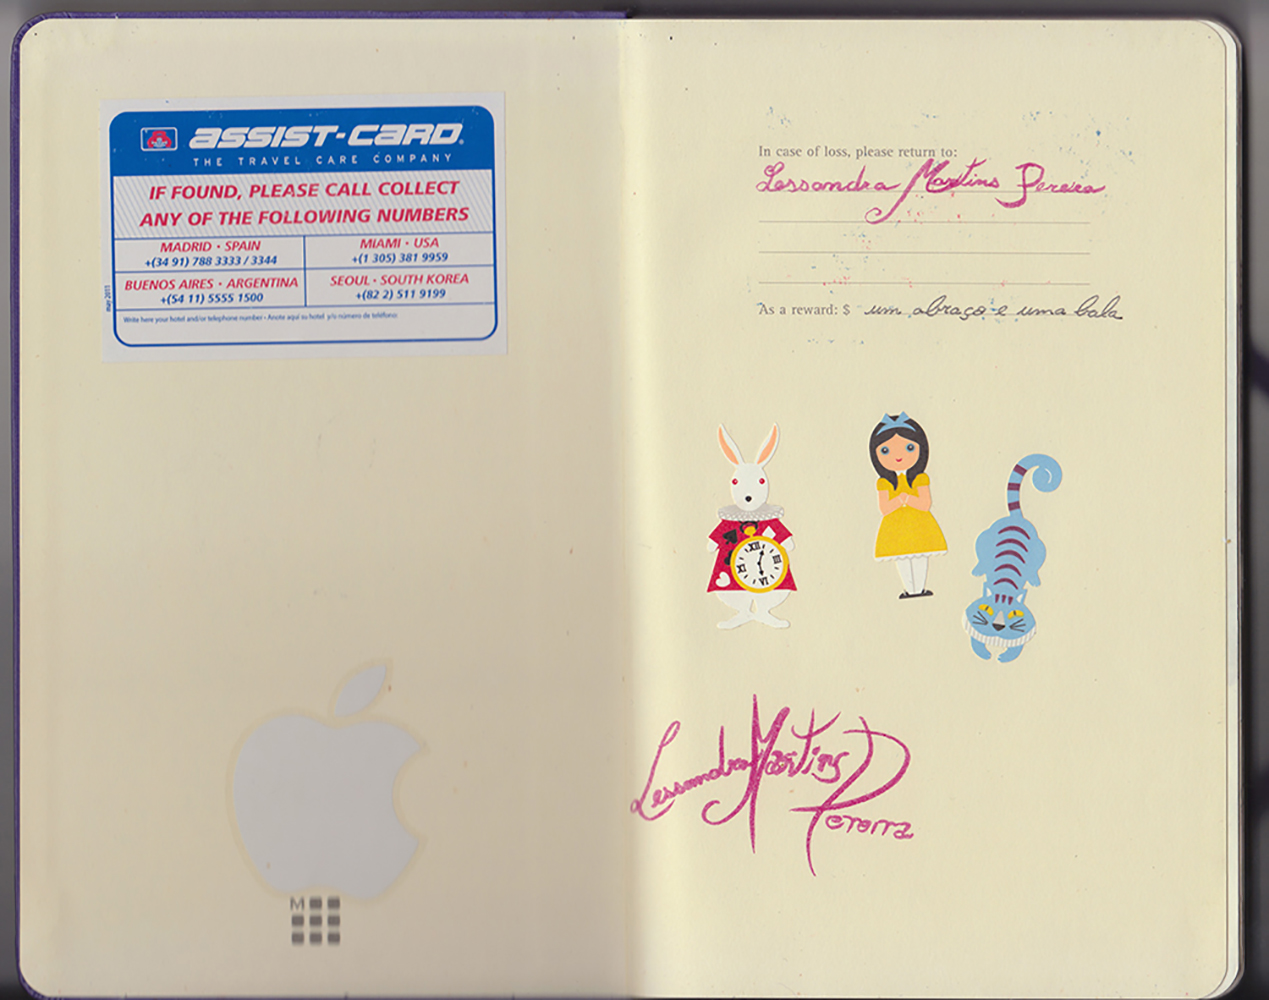 ASSIST-CARD®
THE TRAVEL CARE COMPANY
IF FOUND, PLEASE CALL COLLECT
ANY OF THE FOLLOWING NUMBERS
MADRID • SPAIN
+(34 91) 788 3333 / 3344
MIAMI • USA
+(1 305) 381 9959
BUENOS AIRES • ARGENTINA
+(54 11) 5555 1500
SEOUL • SOUTH KOREA
+(82 2) 511 9199
Write here your hotel and/or telephone number • Anote aquí su hotel y/o número de teléfono:
may 2011
M
In case of loss, please return to:
Lessandra Martins Pereira
As a reward: $ um abraço e uma bala
XII
III
VI
IX
Lessandra Martins
Pereira